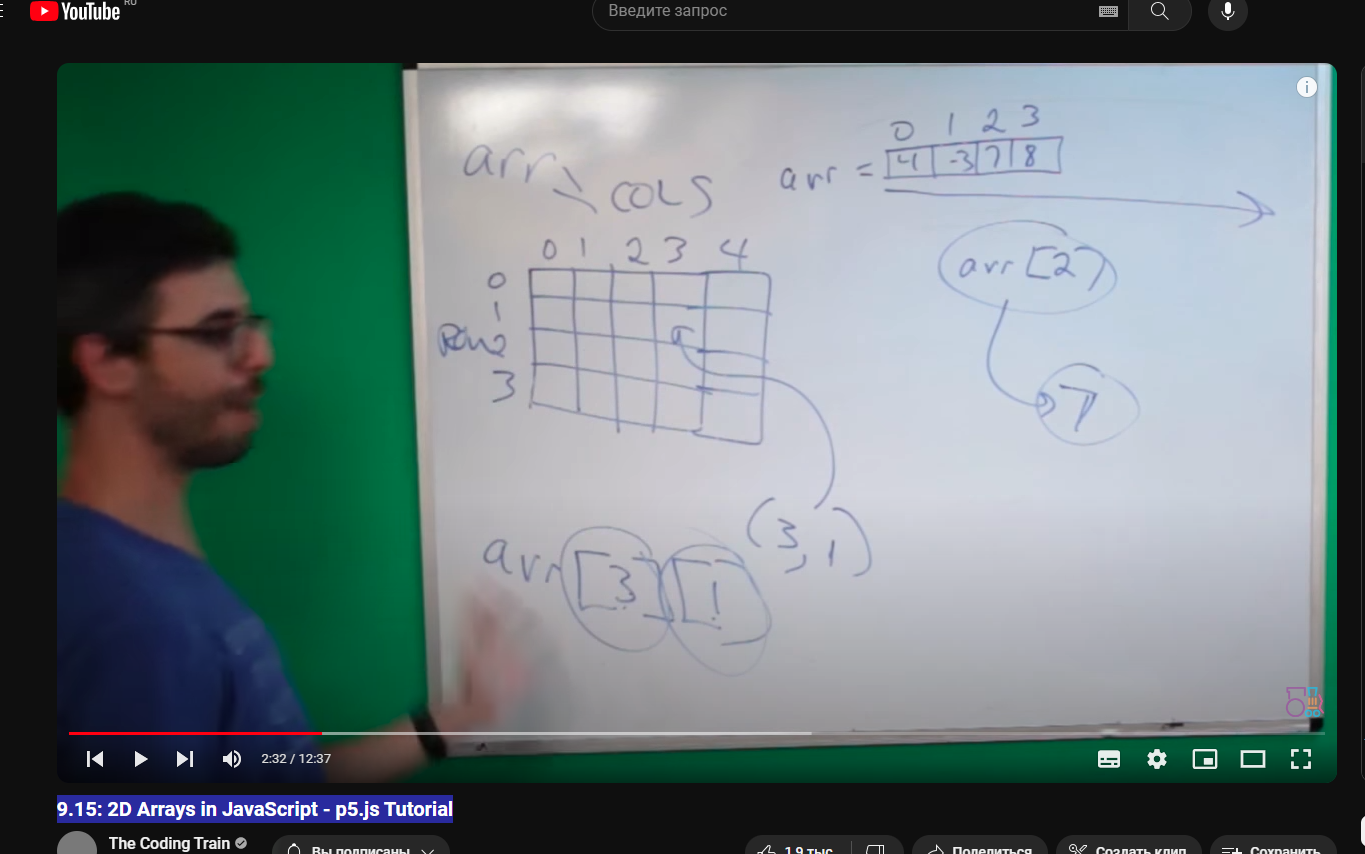 YouTube RU
Введите запрос
arr
COLS
0 1 2 3 4
0
1
Row 2
3
0 1 2 3
arr = 4 -3 7 8
arr[2]
7
(3, 1)
arr[3][1]
2:32 / 12:37
9.15: 2D Arrays in JavaScript - p5.js Tutorial
The Coding Train
Вы подписаны
1,9 тыс.
Поделиться
Создать клип
Сохранить